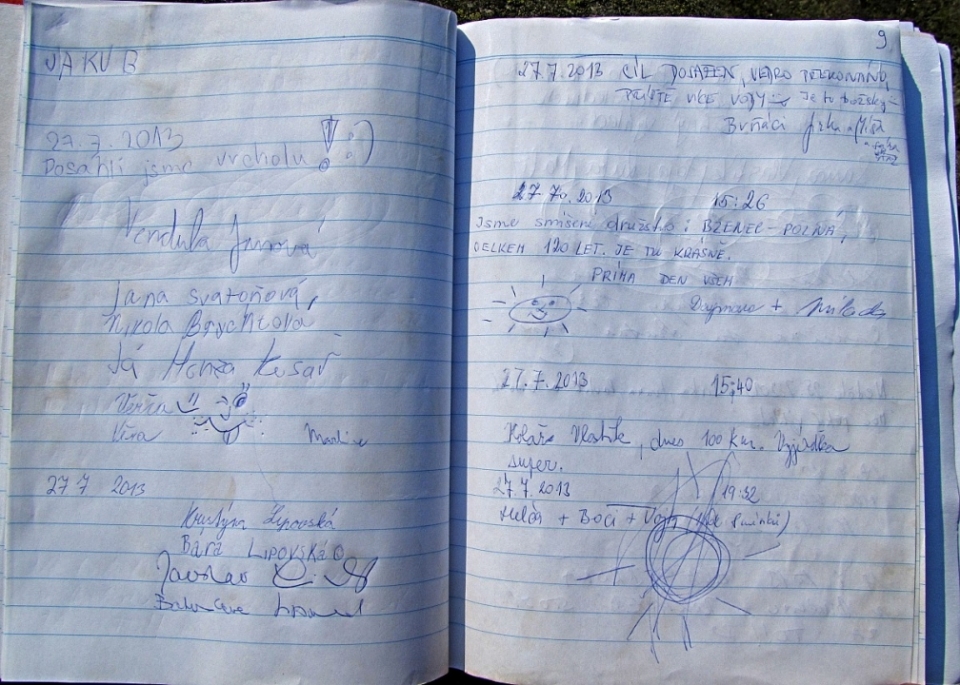 JAKUB
27.7.2013
Dosáhli jsme vrcholu! :)
Vendula
Jana Svatoňová,
Nikola Brychtová
Já Honza Kusař
Věrka
Věra
27 7 2013
Krystýna Lipovská
Bára LIPOVSKÁ
Jaroslav
9
27.7.2013 CÍL DOSAŽEN, VEDRO PŘEKONÁNO,
PŘÍŠTĚ VÍCE VODY Je tu božsky
Brňáci Jirka Míša
27.70.2013 15:26
Jsme smíšené družstvo: BZENEC-POZNÁ,
CELKEM 120 LET. JE TU KRÁSNĚ.
PRIMA DEN VŠEM
Dagmara + Milada
27.7.2013 15:40
Vlastík, dnes 100 km. Vyjížďka
super.
27.7.2013 19:32
+ Boči +